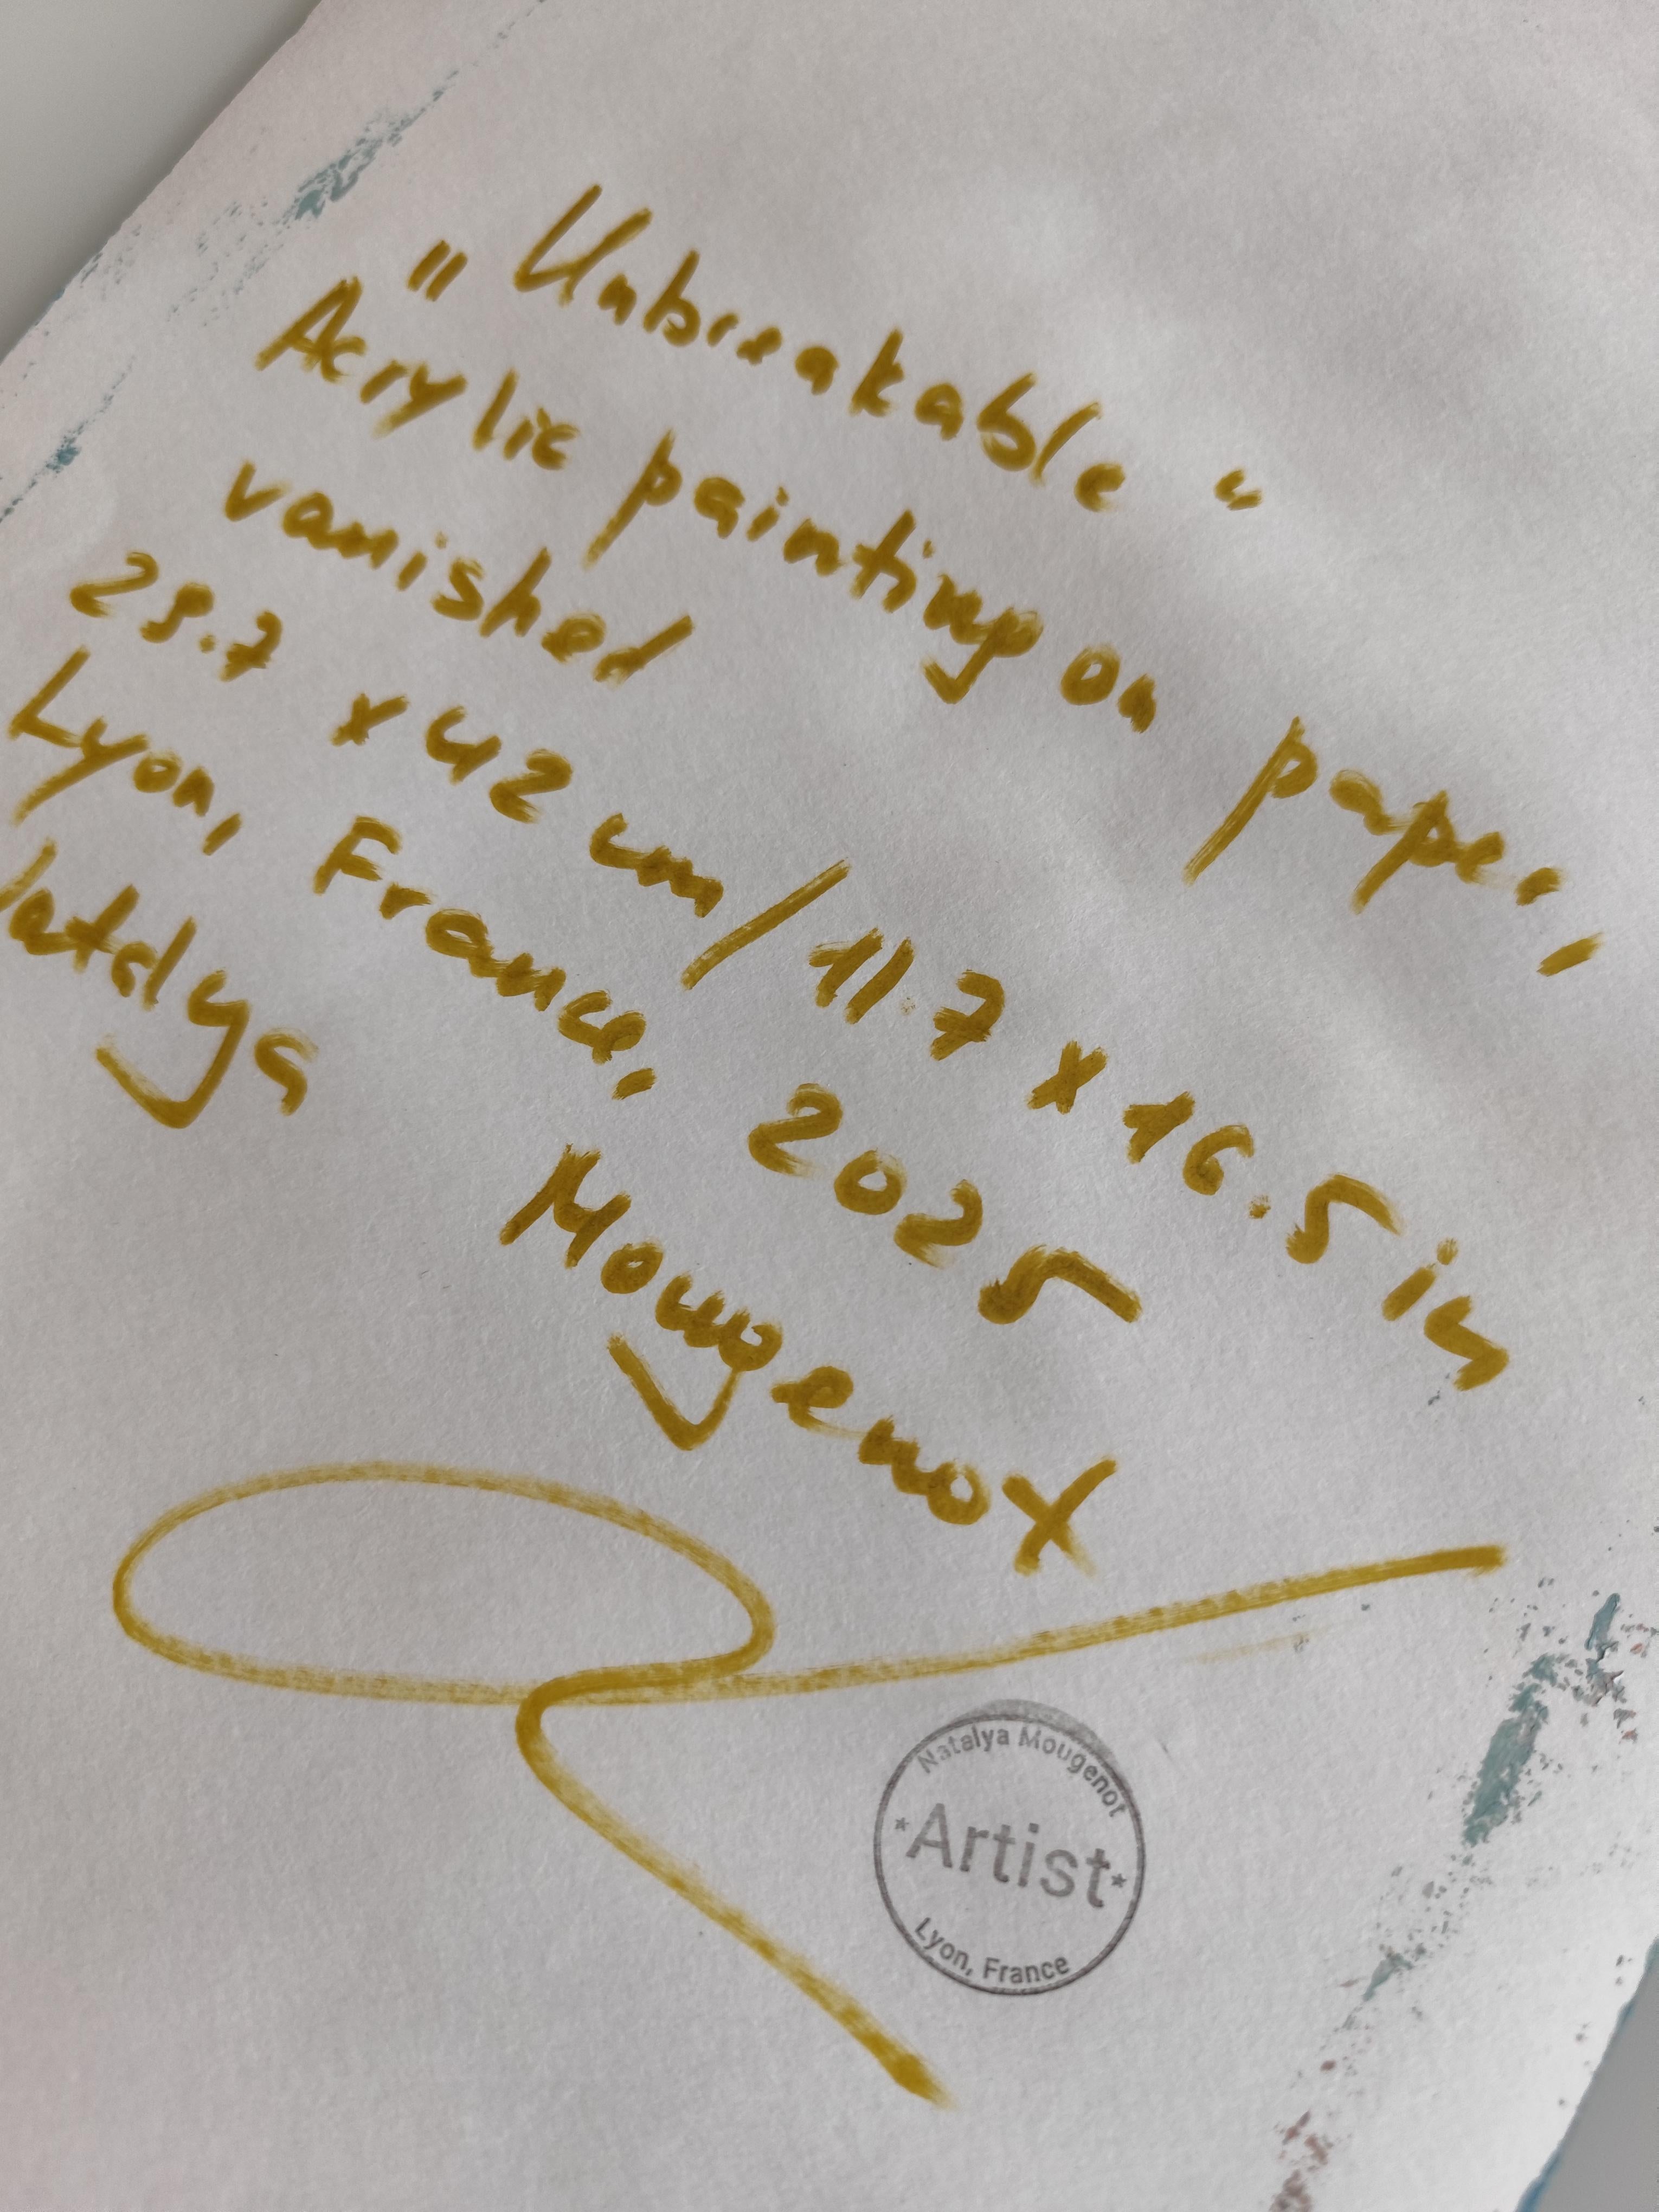 "Unbreakable"
Acrylic painting on paper,
vanished
29.7 x 42 cm / 11.7 x 16.5 in
Lyon, France, 2025
Natalya Mougenot
Natalya Mougenot
*Artist*
Lyon, France